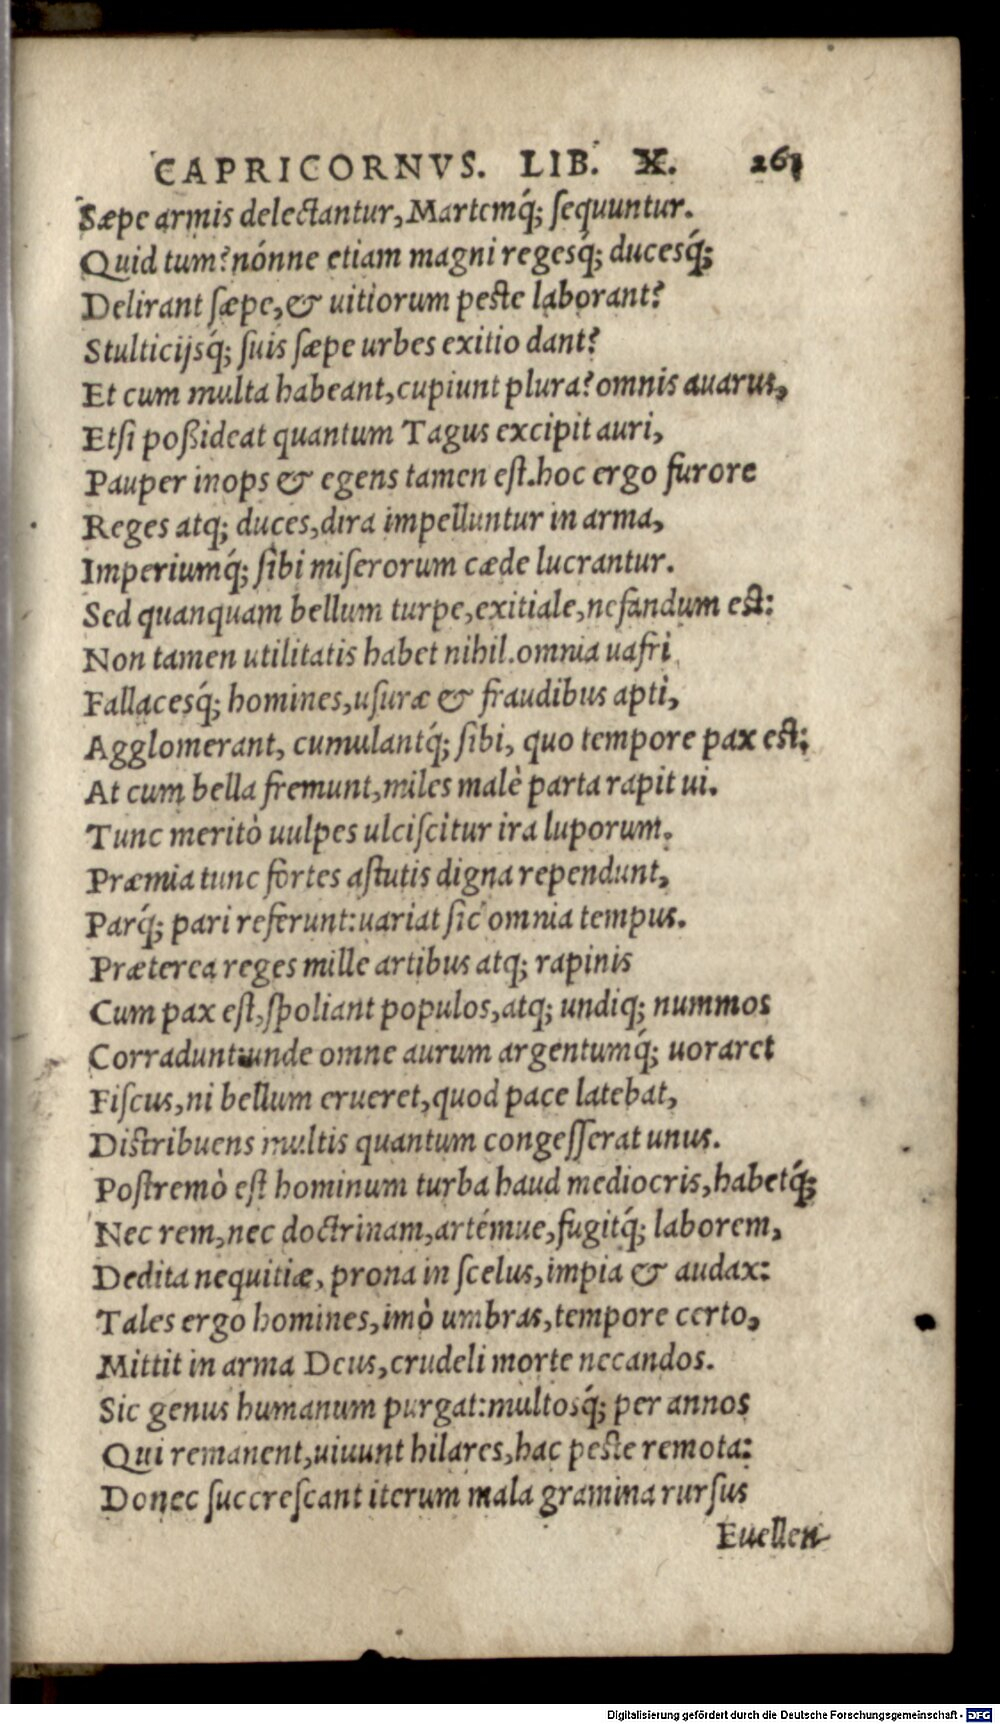 CAPRICORNVS. LIB. X. 261
Sæpe armis delectantur, Martemq́; ſequuntur.
Quid tum? nónne etiam magni regesq́; ducesq́;
Delirant ſæpe, & uitiorum peste laborant?
Stulticijsq́; ſuis ſæpe urbes exitio dant?
Et cum multa habeant, cupiunt plura? omnis auarus,
Etſi poßideat quantum Tagus excipit auri,
Pauper inops & egens tamen eſt. hoc ergo furore
Reges atq; duces, dira impelluntur in arma,
Imperiumq́; ſibi miſerorum cæde lucrantur.
Sed quanquam bellum turpe, exitiale, nefandum est:
Non tamen utilitatis habet nihil. omnia uafri
Fallacesq́; homines, uſuræ & fraudibus apti,
Agglomerant, cumulantq́; ſibi, quo tempore pax est:
At cum bella fremunt, miles malè parta rapit ui.
Tunc meritò uulpes ulciſcitur ira luporum.
Præmia tunc fortes astutis digna rependunt,
Parq́; pari referunt: uariat ſic omnia tempus.
Præterea reges mille artibus atq; rapinis
Cum pax eſt, ſpoliant populos, atq; undiq; nummos
Corradunt: unde omne aurum argentumq́; uoraret
Fiſcus, ni bellum erueret, quod pace latebat,
Distribuens multis quantum congeſſerat unus.
Postremò eſt hominum turba haud mediocris, habetq́;
Nec rem, nec doctrinam, artémue, fugitq́; laborem,
Dedita nequitiæ, prona in ſcelus, impia & audax:
Tales ergo homines, imò umbras, tempore certo,
Mittit in arma Deus, crudeli morte necandos.
Sic genus humanum purgat: multosq́; per annos
Qui remanent, uiuunt hilares, hac peste remota:
Donec ſuccreſcant iterum mala gramina rurſus
Euellen-
Digitalisierung gefördert durch die Deutsche Forschungsgemeinschaft - DFG